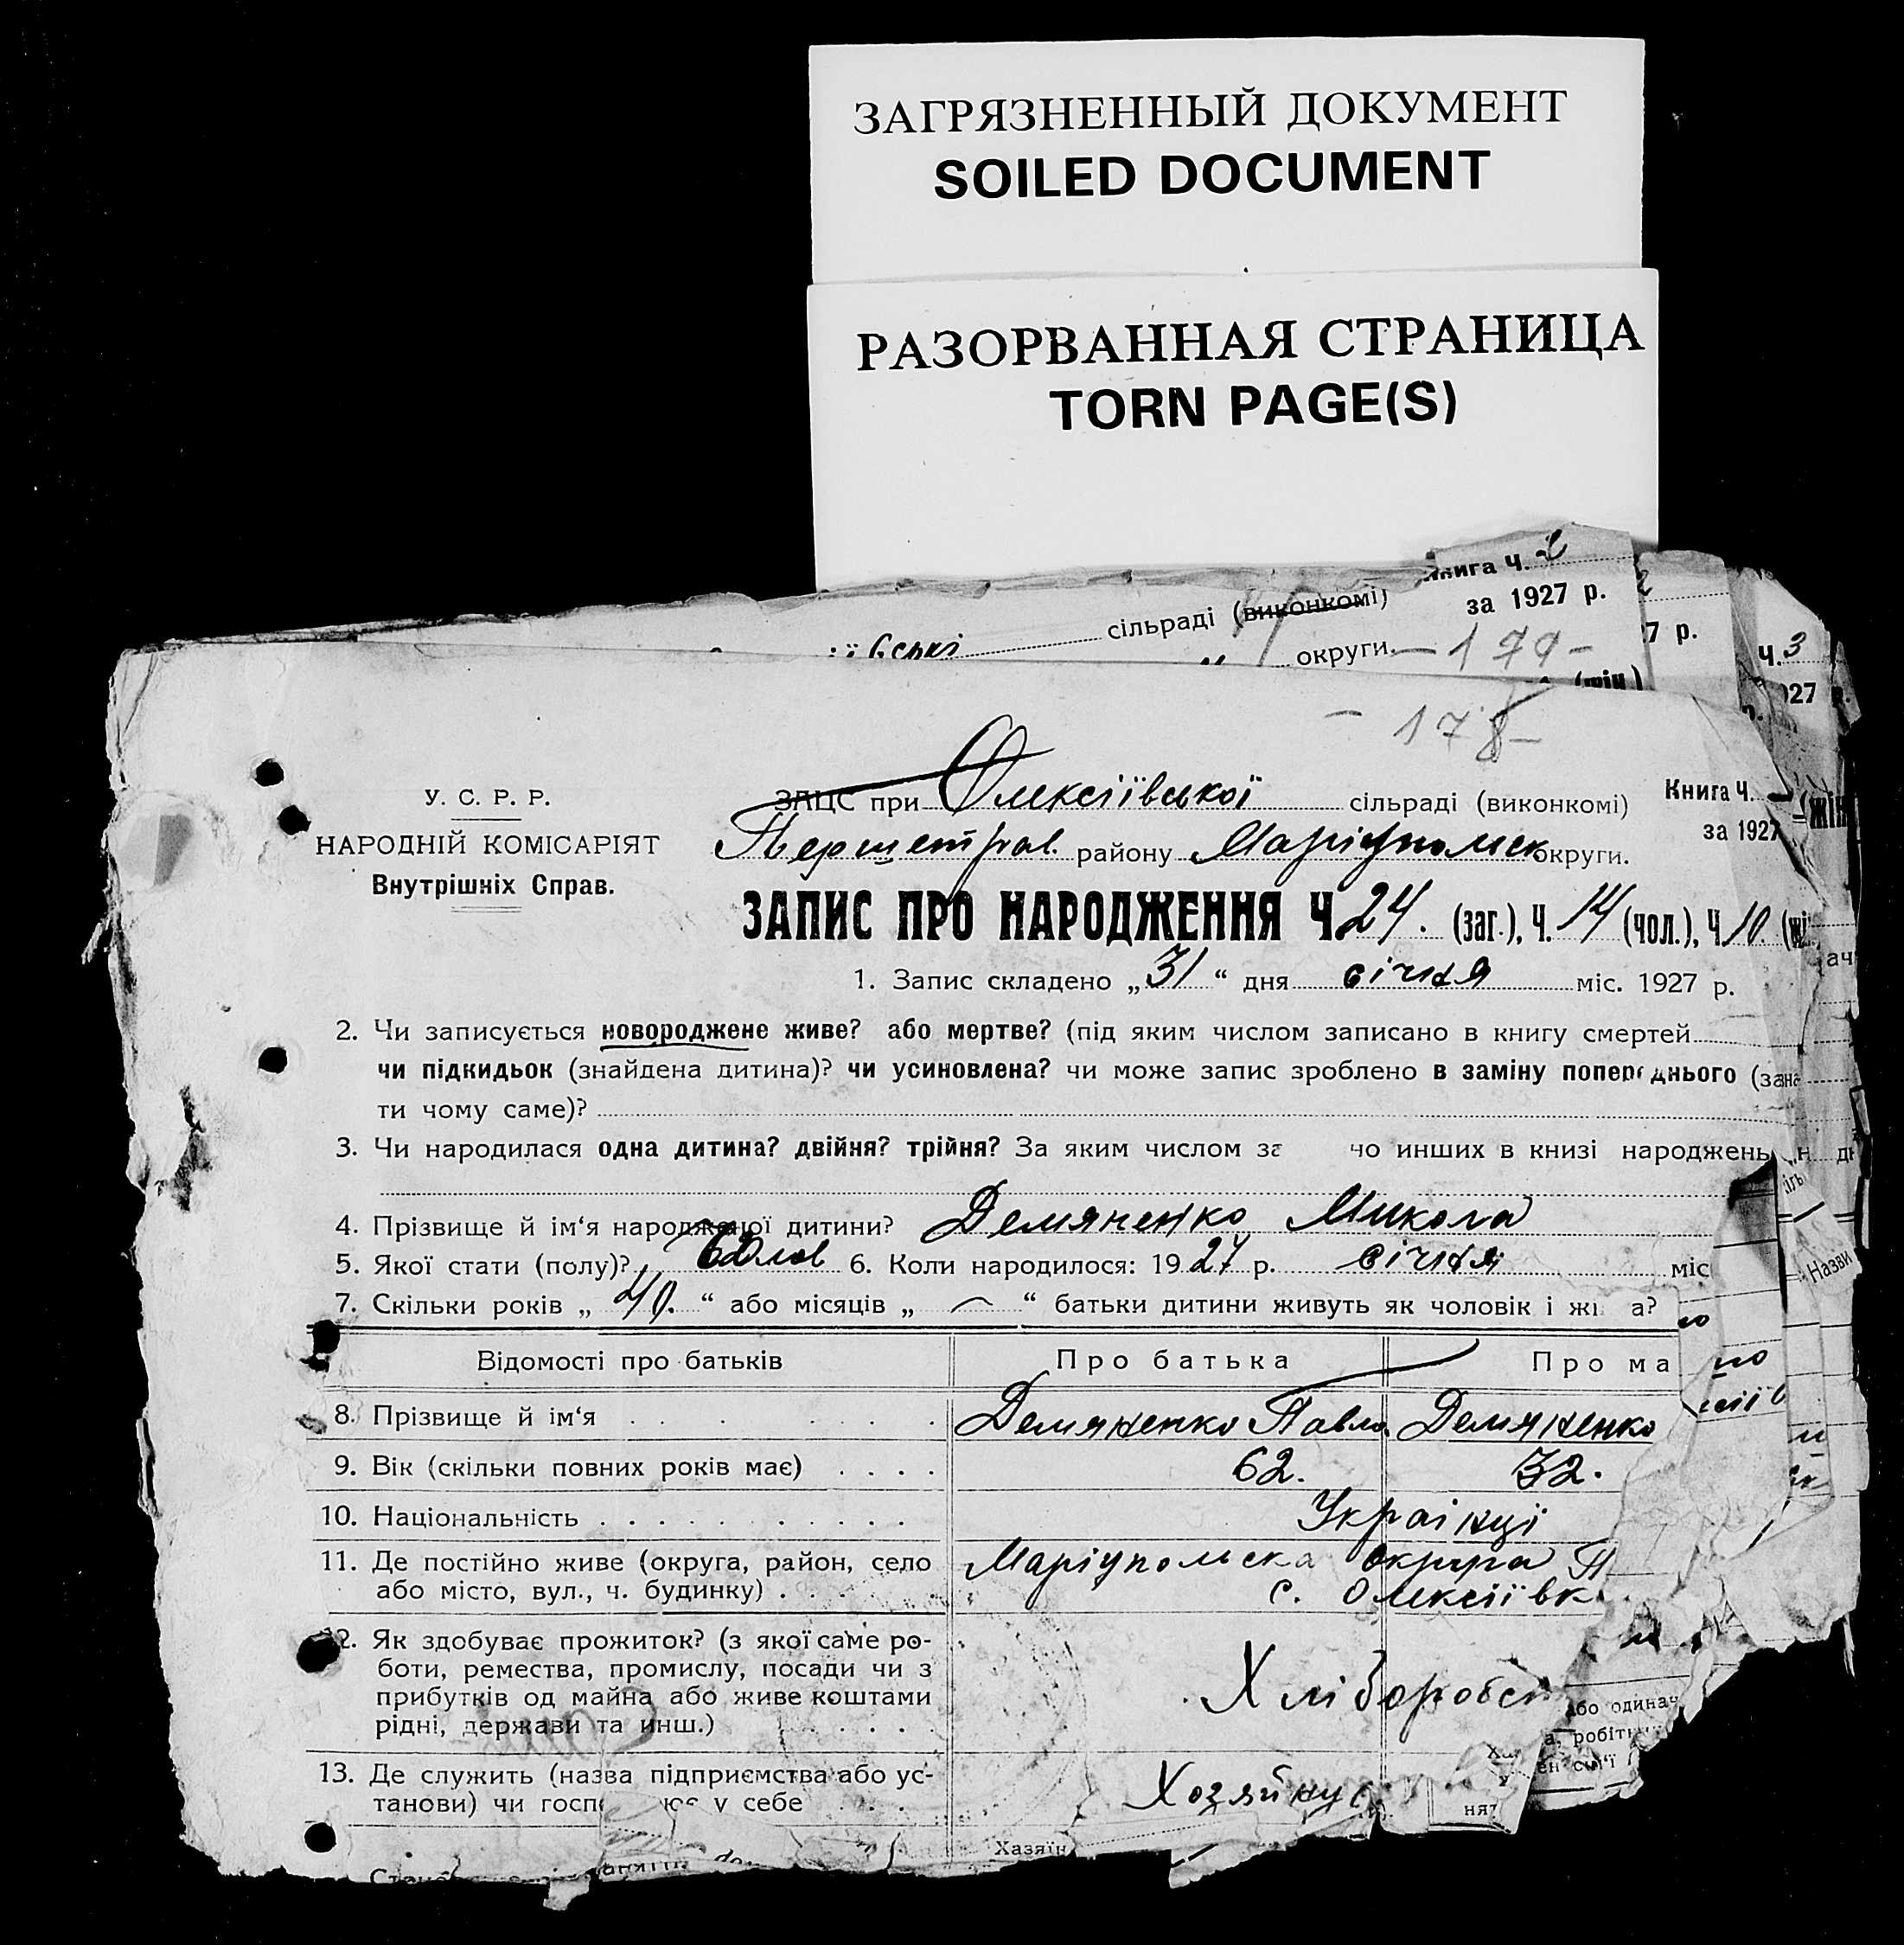 ЗАГРЯЗНЕННЫЙ ДОКУМЕНТ
SOILED DOCUMENT
РАЗОРВАННАЯ СТРАНИЦА
TORN PAGE(S)
Книга ч. 2
сільраді (виконкомі) за 1927 р.
округи. — 179 —
7 р.
ч. 3
927 р.
— 178 —
У. С. Р. Р.
НАРОДНІЙ КОМІСАРІЯТ
Внутрішніх Справ.
ЗАЦС при Олексіївської сільраді (виконкомі) Книга Ч.
району Маріупольск округи. за 1927
ЗАПИС ПРО НАРОДЖЕННЯ Ч. 24. (заг.), Ч. 14 (чол.), Ч 10. (жі
1. Запис складено „31“ дня січня міс. 1927 р.
2. Чи записується новороджене живе? або мертве? (під яким числом записано в книгу смертей
чи підкидьок (знайдена дитина)? чи усиновлена? чи може запис зроблено в заміну попереднього (зазна
ти чому саме)?
3. Чи народилася одна дитина? двійня? трійня? За яким числом за но инших в книзі народжень
4. Прізвище й ім‘я народженої дитини? Демяненко Микола
5. Якої стати (полу)? 6. Коли народилося: 1927 р. січня міс
7. Скільки років „ “ або місяців „ — “ батьки дитини живуть як чоловік і жі а?
Відомості про батьків Про батька Про ма
8. Прізвище й ім‘я Демяненко Павло Демяненко
9. Вік (скільки повних років має) 62. 32.
10. Національність Українці
11. Де постійно живе (округа, район, село Маріупольска округа П
або місто, вул., ч. будинку) с. Олексіївк
12. Як здобуває прожиток? (з якої саме ро-
боти, ремества, промислу, посади чи з
прибутків од майна або живе коштами Хліборобст
рідні, держави та инш.)
13. Де служить (назва підприємства або ус-
танови) чи госп ює у себе Хозяйнує
Хазяїн
Назви
або одинач
а, робітн
ен сім‘ї